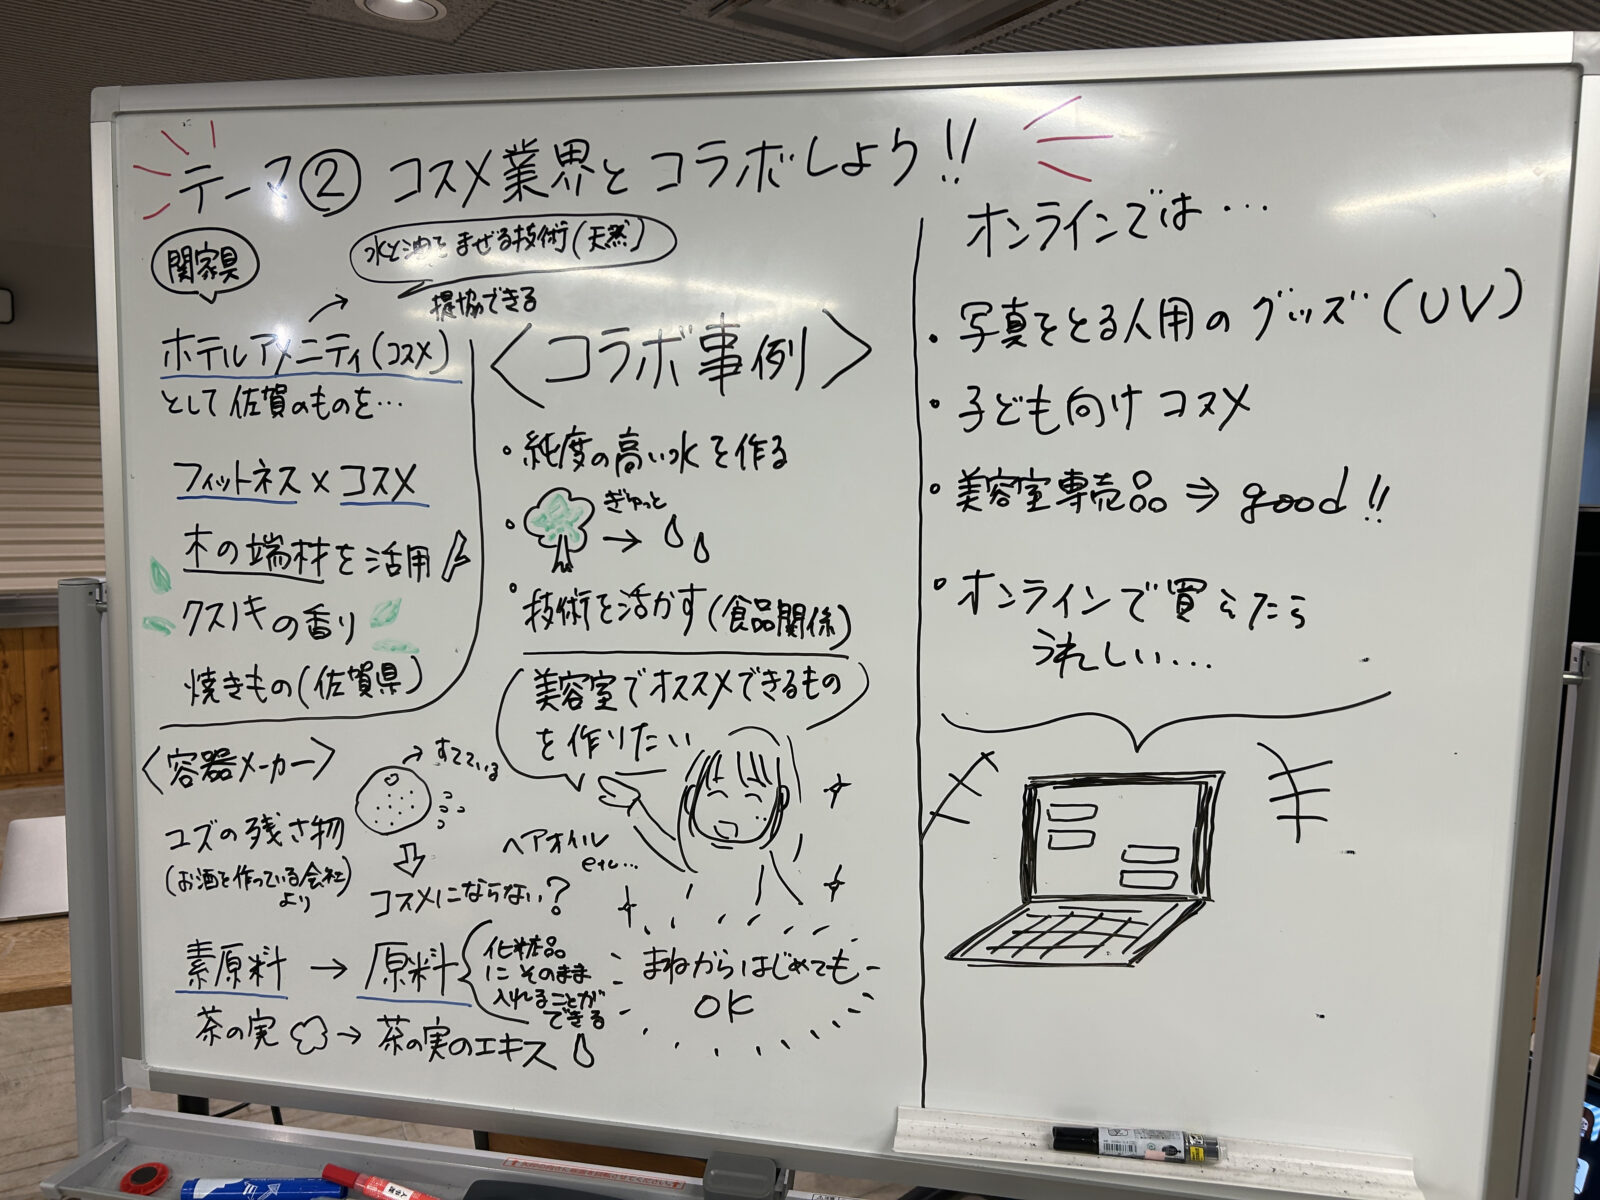 テーマ② コスメ業界とコラボしよう!!
関家具
水と油をまぜる技術(天然)
提協できる
ホテルアメニティ(コスメ)
として佐賀のものを…
フィットネス×コスメ
木の端材を活用
クスノキの香り
焼きもの(佐賀県)
<容器メーカー>
→すてている
ユズの残さ物
(お酒を作っている会社より)
コスメにならない?
素原料→原料
化粧品
にそのまま
入れることが
できる
茶の実→茶の実のエキス
<コラボ事例>
・純度の高い水を作る
・ぎゅっと→
・技術を活かす(食品関係)
美容室でオススメできるもの
を作りたい
ヘアオイル
etc…
まねからはじめても
OK
オンラインでは…
・写真をとる人用のグッズ(UV)
・子ども向けコスメ
・美容室専売品⇒good!!
・オンラインで買えたら
うれしい…